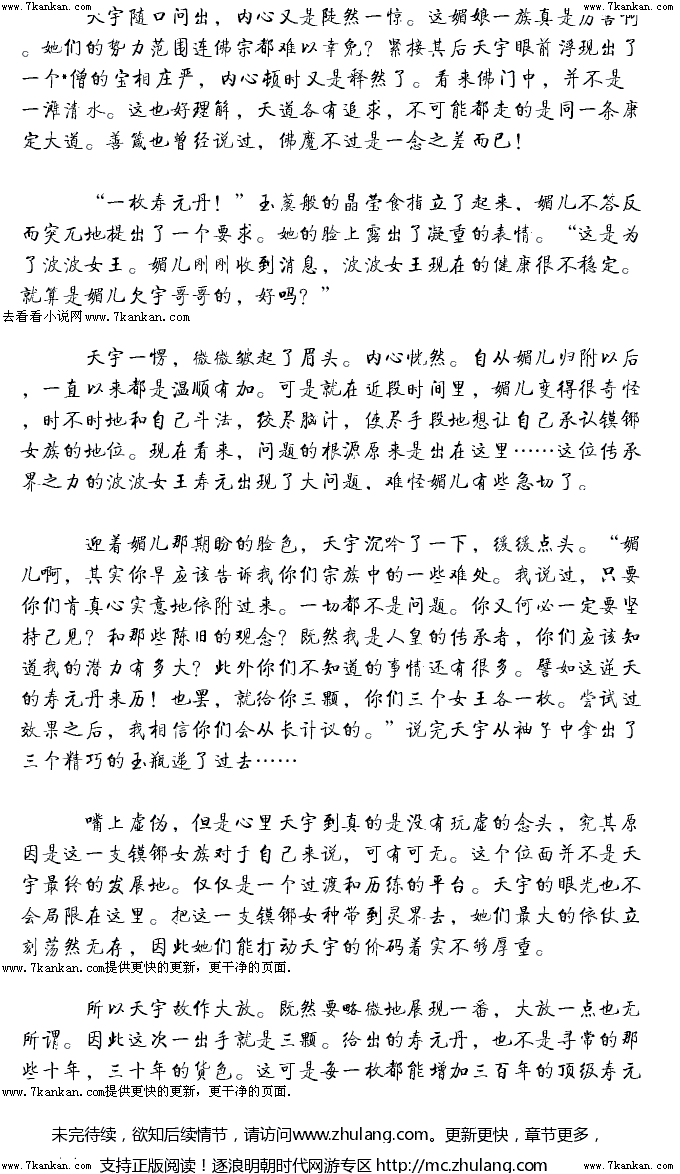 www.7kankan.com www.7kankan.com
天宇随口问出，内心又是陡然一惊。这媚娘一族真是厉害啊
。她们的势力范围连佛宗都难以幸免？紧接其后天宇眼前浮现出了
一个*僧的宝相庄严，内心顿时又是释然了。看来佛门中，并不是
一滩清水。这也好理解，天道各有追求，不可能都走的是同一条康
定大道。善箴也曾经说过，佛魔不过是一念之差而已！
“一枚寿元丹！”玉藕般的晶莹食指立了起来，媚儿不答反
而突兀地提出了一个要求。她的脸上露出了凝重的表情。“这是为
了波波女王。媚儿刚刚收到消息，波波女王现在的健康很不稳定。
就算是媚儿欠宇哥哥的，好吗？”
去看看小说网www.7kankan.com
天宇一愣，微微皱起了眉头。内心恍然。自从媚儿归附以后
，一直以来都是温顺有加。可是就在近段时间里，媚儿变得很奇怪
，时不时地和自己斗法，绞尽脑汁，使尽手段地想让自己承认镆铘
女族的地位。现在看来，问题的根源原来是出在这里……这位传承
界之力的波波女王寿元出现了大问题，难怪媚儿有些急切了。
迎着媚儿那期盼的脸色，天宇沉吟了一下，缓缓点头。“媚
儿啊，其实你早应该告诉我你们宗族中的一些难处。我说过，只要
你们肯真心实意地依附过来。一切都不是问题。你又何必一定要坚
持己见？和那些陈旧的观念？既然我是人皇的传承者，你们应该知
道我的潜力有多大？此外你们不知道的事情还有很多。譬如这逆天
的寿元丹来历！也罢，就给你三颗，你们三个女王各一枚。尝试过
效果之后，我相信你们会从长计议的。”说完天宇从袖子中拿出了
三个精巧的玉瓶递了过去……
嘴上虚伪，但是心里天宇到真的是没有玩虚的念头，究其原
因是这一支镆铘女族对于自己来说，可有可无。这个位面并不是天
宇最终的发展地。仅仅是一个过渡和历练的平台。天宇的眼光也不
会局限在这里。把这一支镆铘女种带到灵界去，她们最大的依仗立
刻荡然无存，因此她们能打动天宇的价码着实不够厚重。
www.7kankan.com提供更快的更新，更干净的页面.
所以天宇故作大放。既然要略微地展现一番，大放一点也无
所谓。因此这次一出手就是三颗。给出的寿元丹，也不是寻常的那
些十年，三十年的货色。这可是每一枚都能增加三百年的顶级寿元
www.7kankan.com提供更快的更新，更干净的页面.
未完待续，欲知后续情节，请访问www.zhulang.com。更新更快，章节更多，
支持正版阅读！逐浪明朝时代网游专区 http://mc.zhulang.com
www.7kankan.com www.7kankan.com